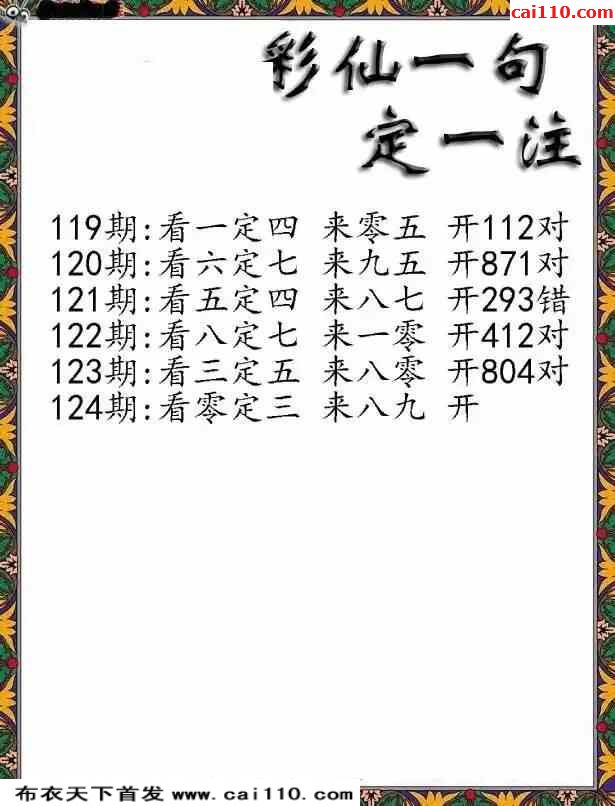 cai110.com
彩仙一句
定一注
119期:看一定四 来零五 开112对
120期:看六定七 来九五 开871对
121期:看五定四 来八七 开293错
122期:看八定七 来一零 开412对
123期:看三定五 来八零 开804对
124期:看零定三 来八九 开
布衣天下首发 www.cai110.com